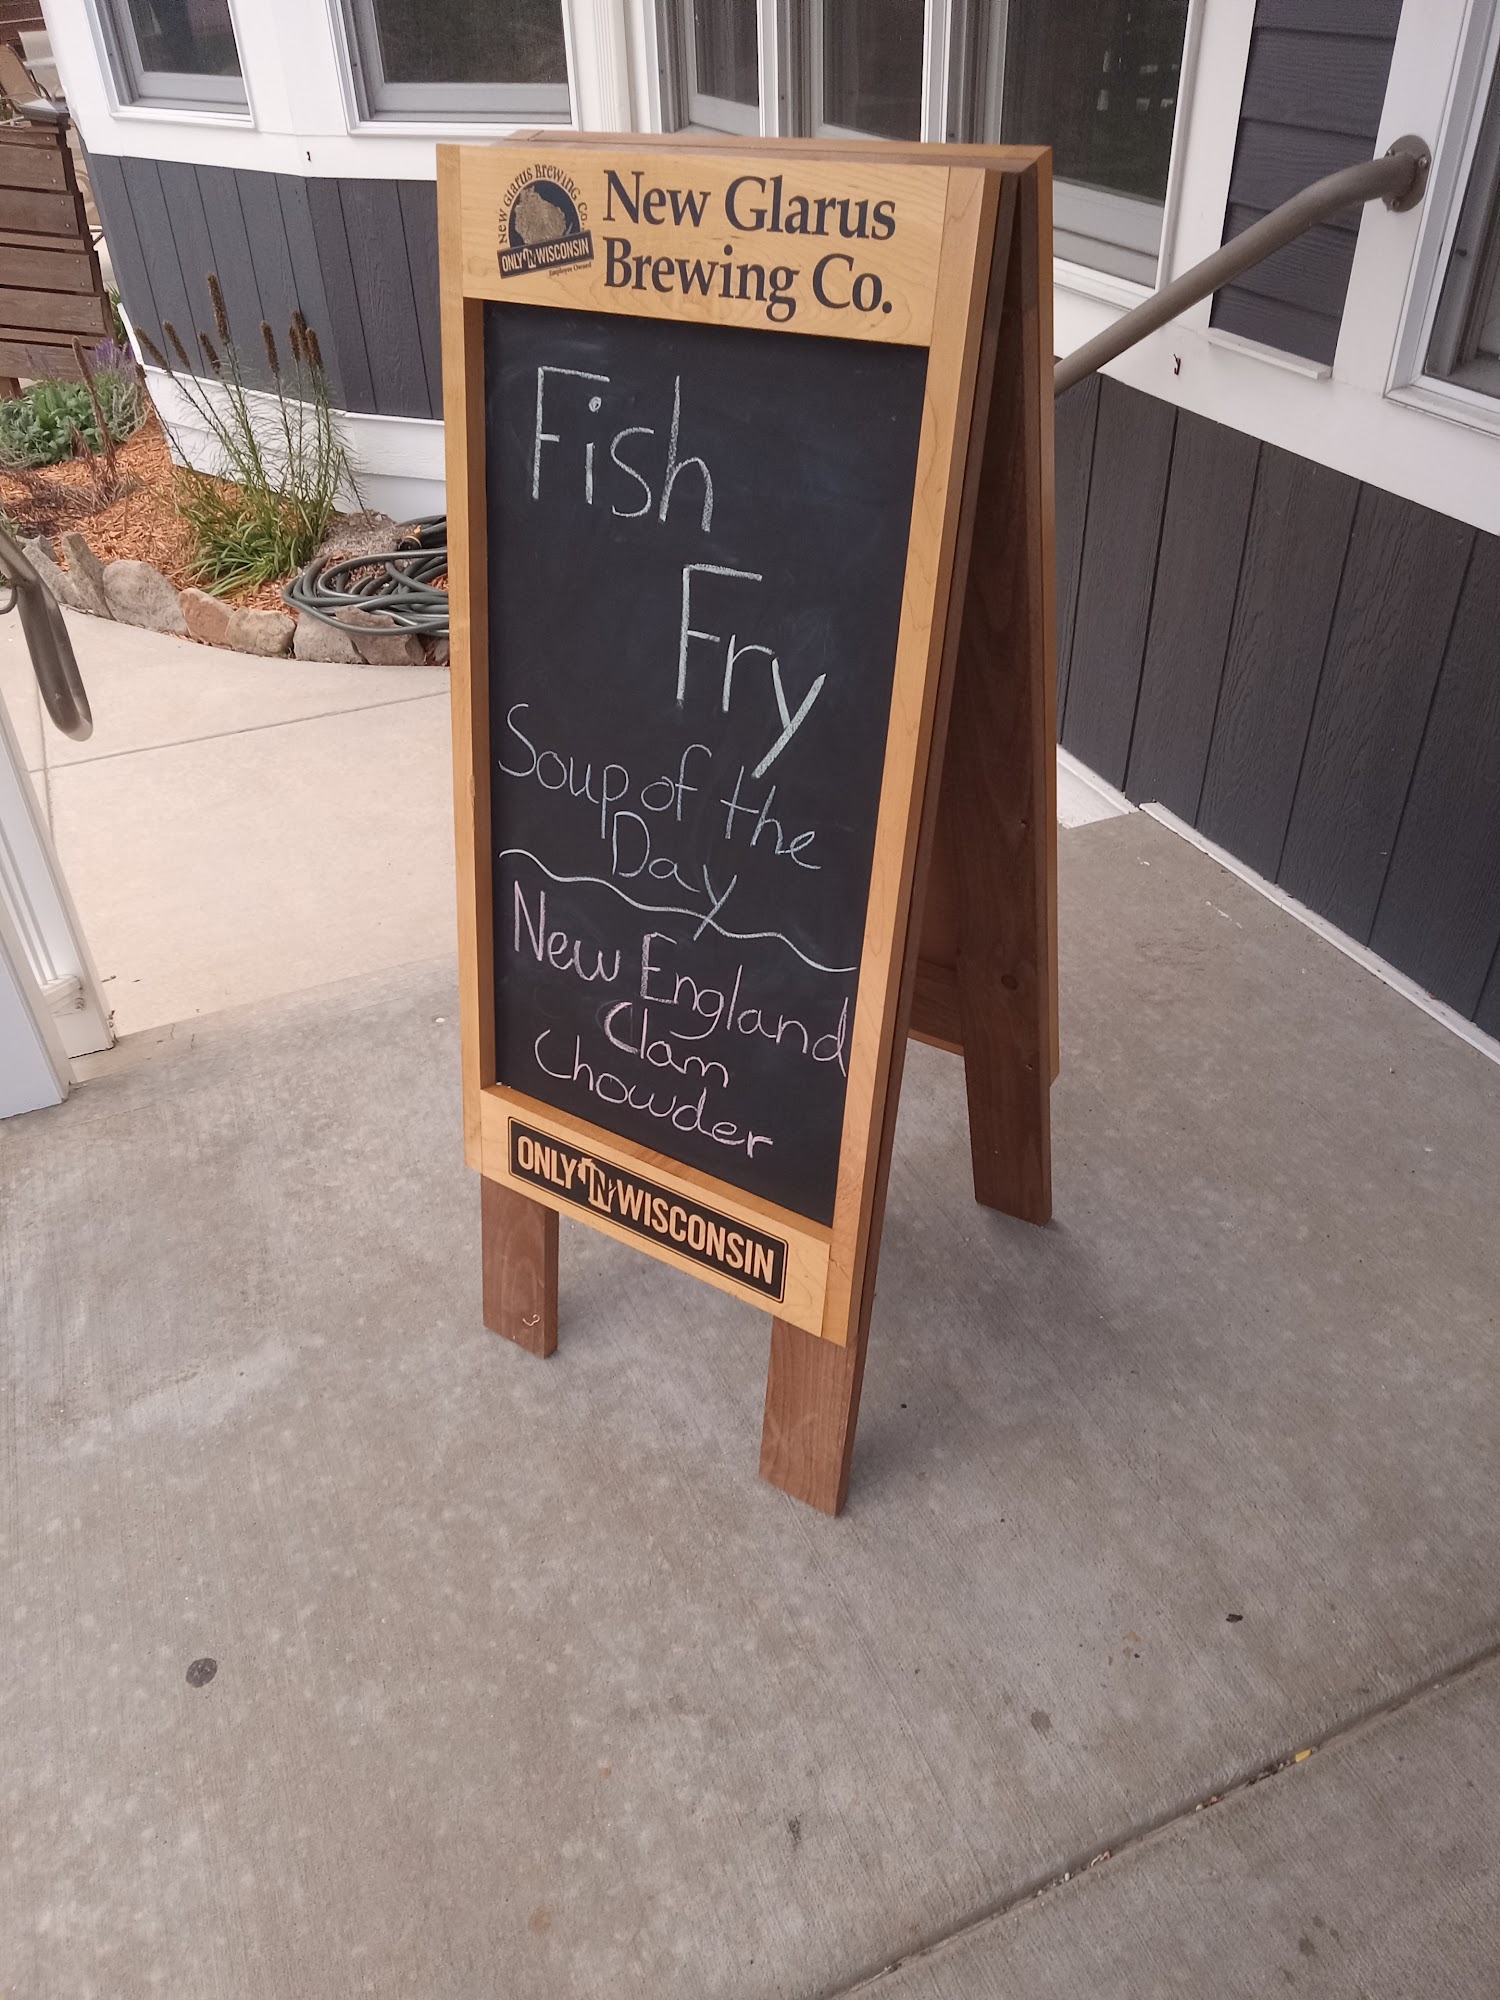 NEW GLARUS BREWING CO.
ONLY IN WISCONSIN
Employee Owned
New Glarus
Brewing Co.
Fish
Fry
Soup of the
Day
New England
Clam
Chowder
ONLY IN WISCONSIN